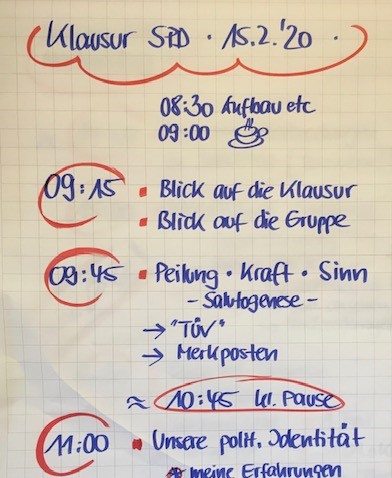 Klausur SPD · 15.2.'20 ·
08:30 Aufbau etc
09:00
09:15 ▪ Blick auf die Klausur
▪ Blick auf die Gruppe
09:45 ▪ Peilung · Kraft · Sinn
- Salutogenese -
→ "TÜV"
→ Merkposten
≈ 10:45 kl. Pause
11:00 ▪ Unsere polit. Identität
meine Erfahrungen